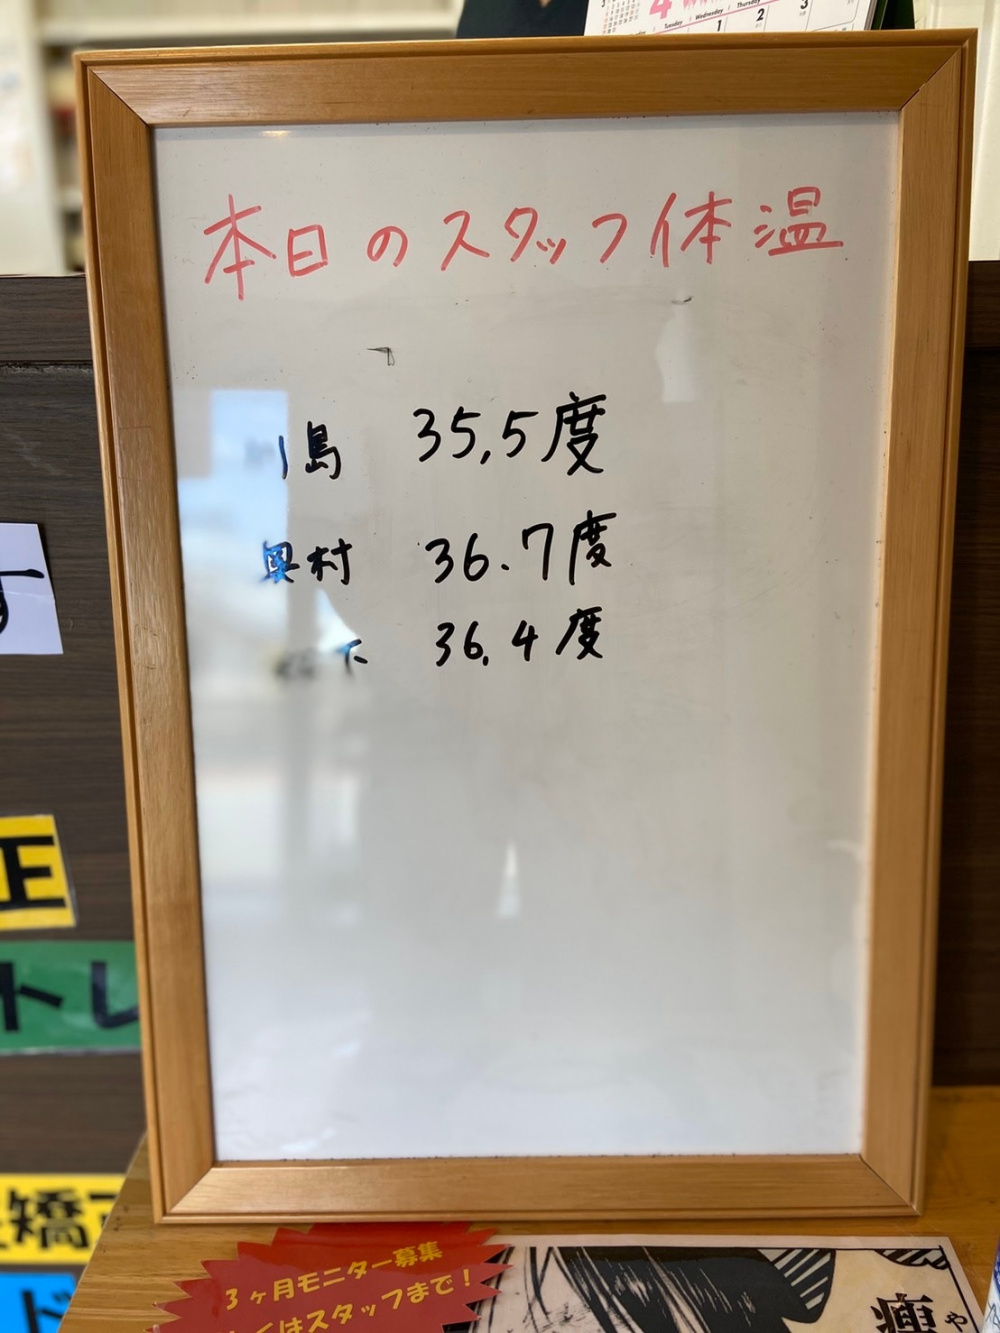 4
Tuesday Wednesday Thursday
1 2 3
本日のスタッフ体温
島 35,5度
奥村 36.7度
下 36,4度
す
正
トレ
矯
ド
3ヶ月モニター募集
はスタッフまで!
痩
や